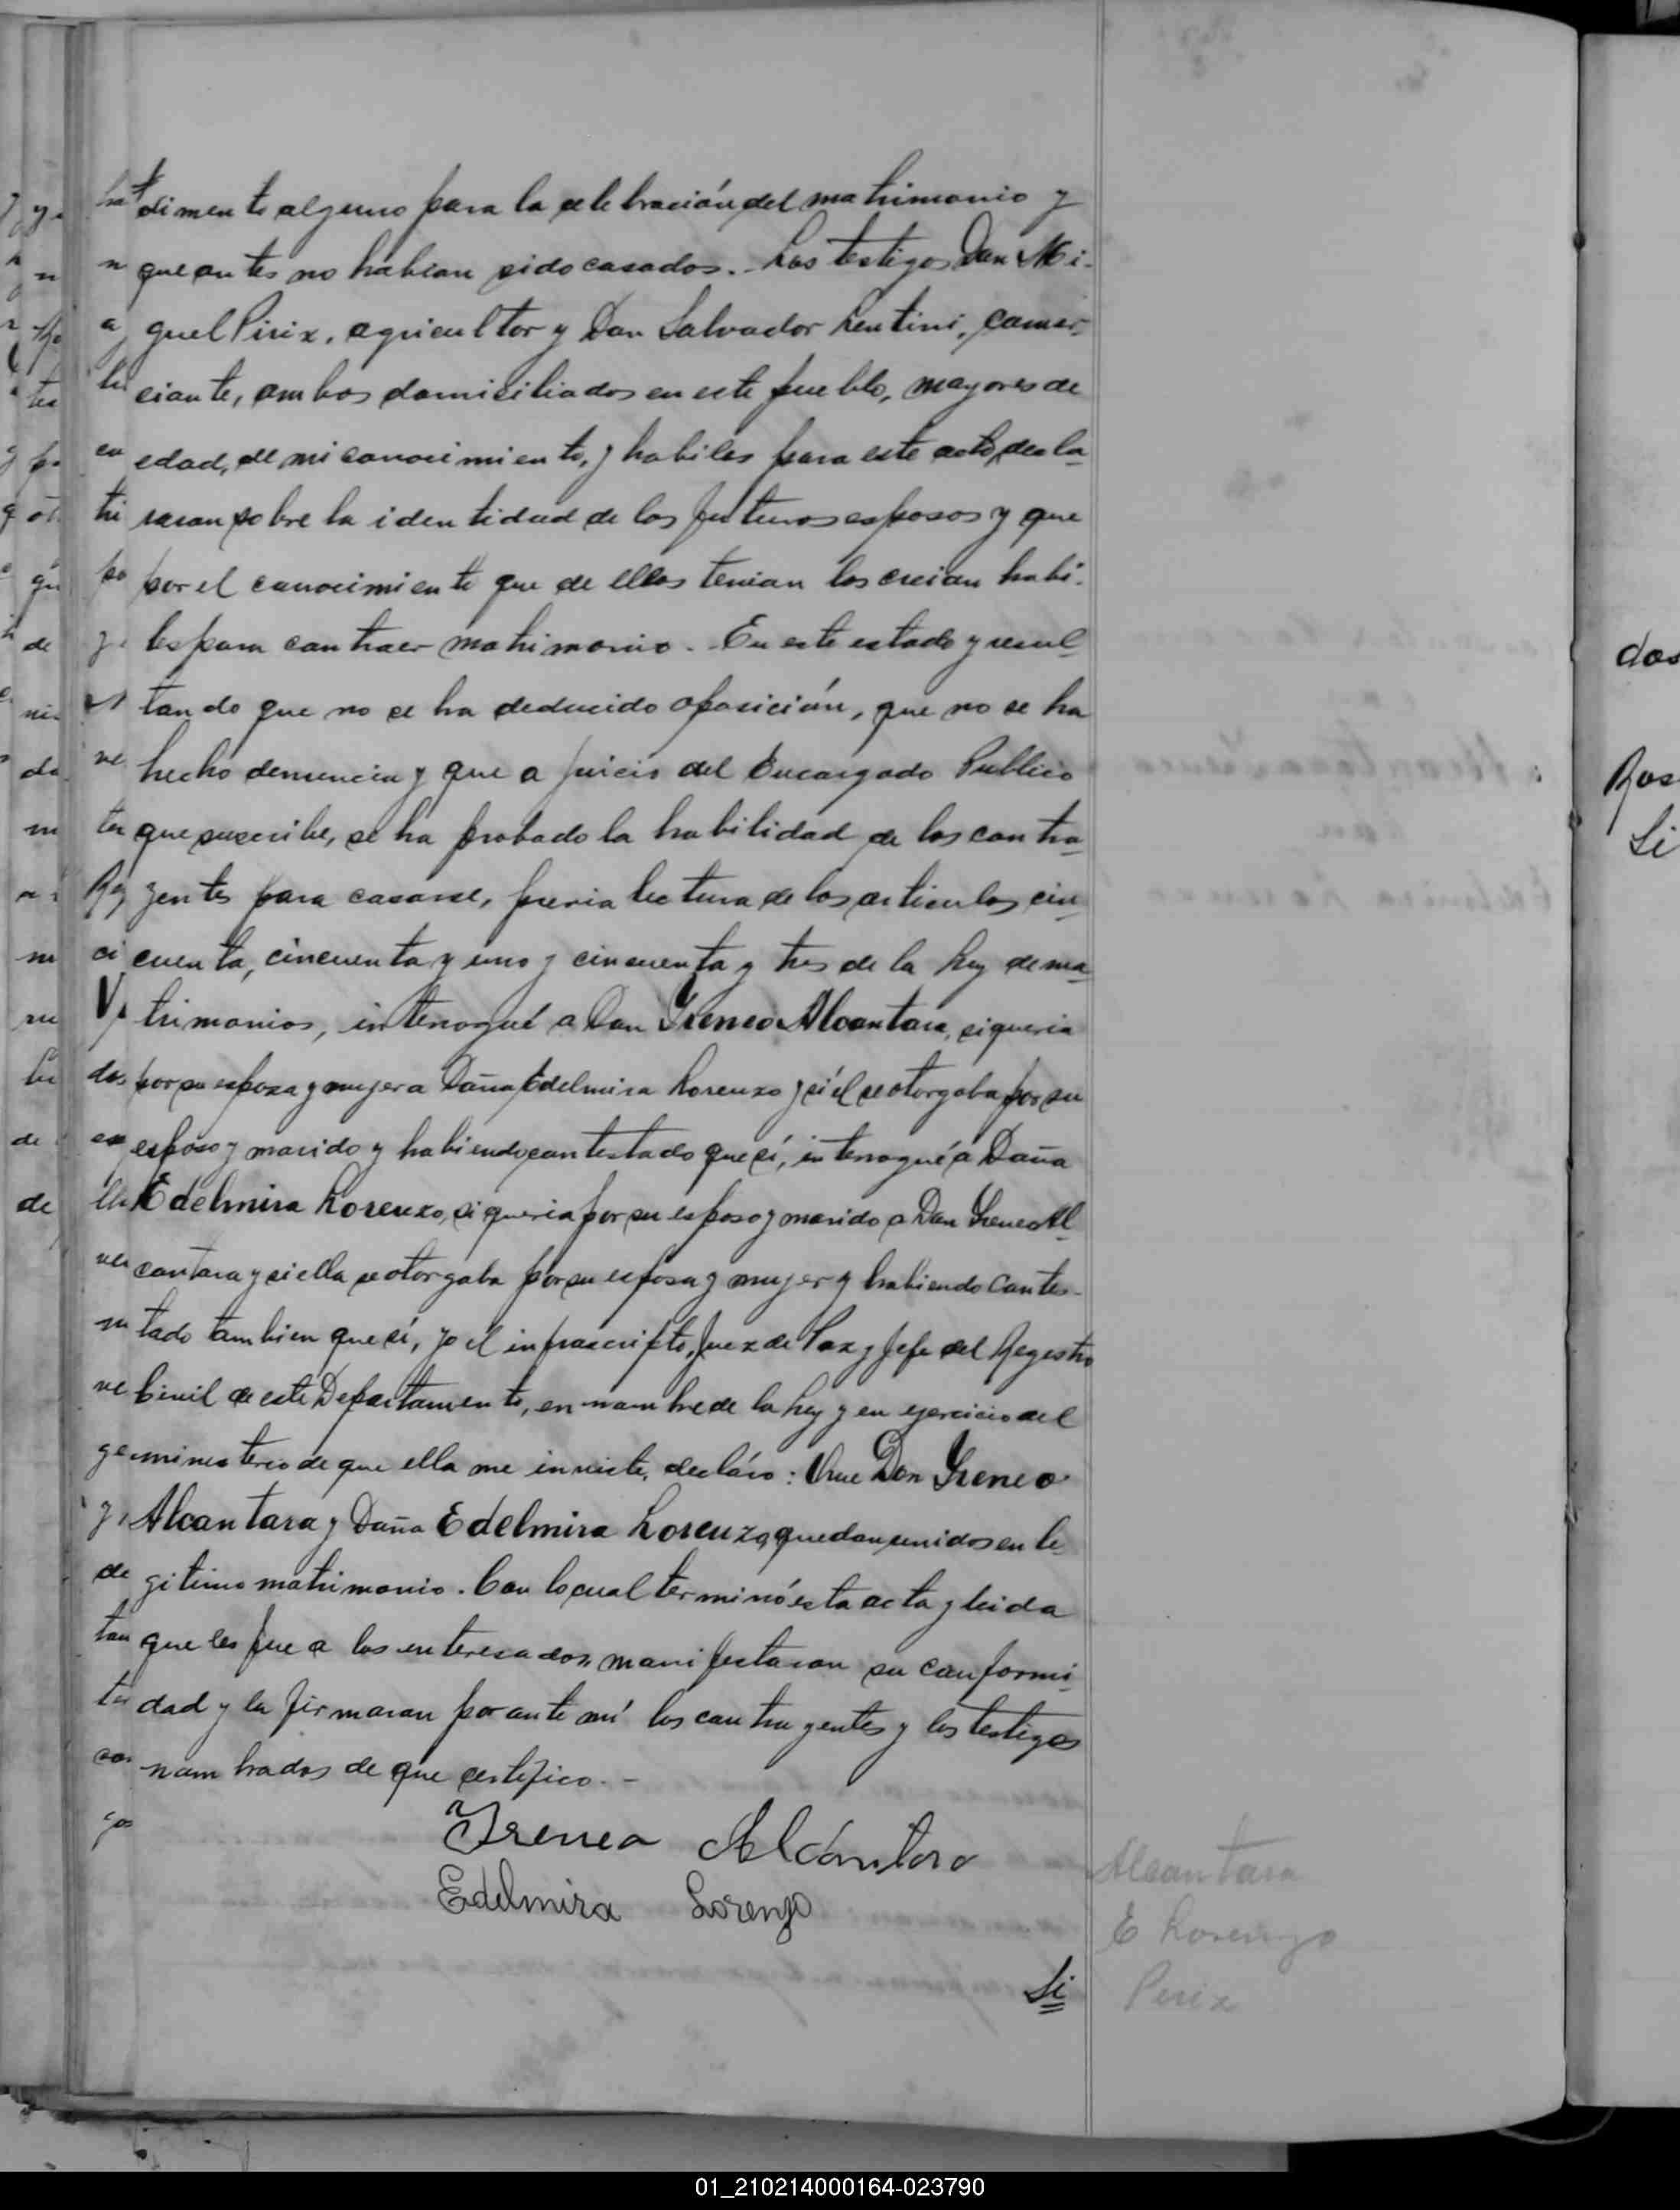 dimento alguno para la celebración del matrimonio y
que antes no habian sido casados. Los testigos Don Mi-
guel Pirix, agricultor y Don Salvador Lentini, comer-
ciante, ambos domiciliados en este pueblo, mayores de
edad, de mi conocimiento, y habiles para este acto, decla-
raron sobre la identidad de los futuros esposos y que
por el conocimiento que de ellos tenian los creian habi-
les para contraer matrimonio. En este estado y resul-
tando que no se ha deducido oposición, que no se ha
hecho denuncia y que a juicio del Encargado Publico
que suscribe, se ha probado la habilidad de los contra-
yentes para casarse, previa lectura de los articulos cin-
cuenta, cincuenta y uno y cincuenta y tres de la Ley de ma-
trimonios, interrogué a Don Ireneo Alcantara, si queria
por su esposa y mujer a Doña Edelmira Lorenzo y si él se otorgaba por su
esposo y marido y habiendo contestado que sí, interrogué a Doña
Edelmira Lorenzo, si queria por su esposo y marido a Don Ireneo Al-
cantara y si ella se otorgaba por su esposa y mujer y habiendo contes-
tado tambien que sí, yo el infrascripto, Juez de Paz y Jefe del Registro
Civil de este Departamento, en nombre de la Ley y en ejercicio del
ministerio de que ella me inviste, decláro: Que Don Ireneo
Alcantara y Doña Edelmira Lorenzo, quedan unidos en le-
gitimo matrimonio. Con lo cual terminó esta acta y leida
que les fue a los interesados, manifestaron su conformi-
dad y la firmaron por ante mí los contrayentes y los testigos
nombrados de que certifico. -
Ireneo Alcántara
Edelmira Lorenzo
Si
Alcantara
E Lorenzo
Pirix
dos
Ros
Si
01_210214000164-023790